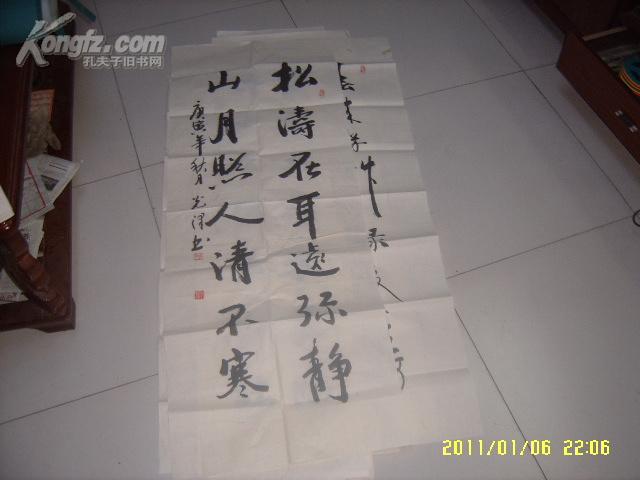 松濤在耳遠弥静
山月照人清不寒
庚寅年秋月光澤书
Kongfz.com
孔夫子旧书网
2011/01/06 22:06